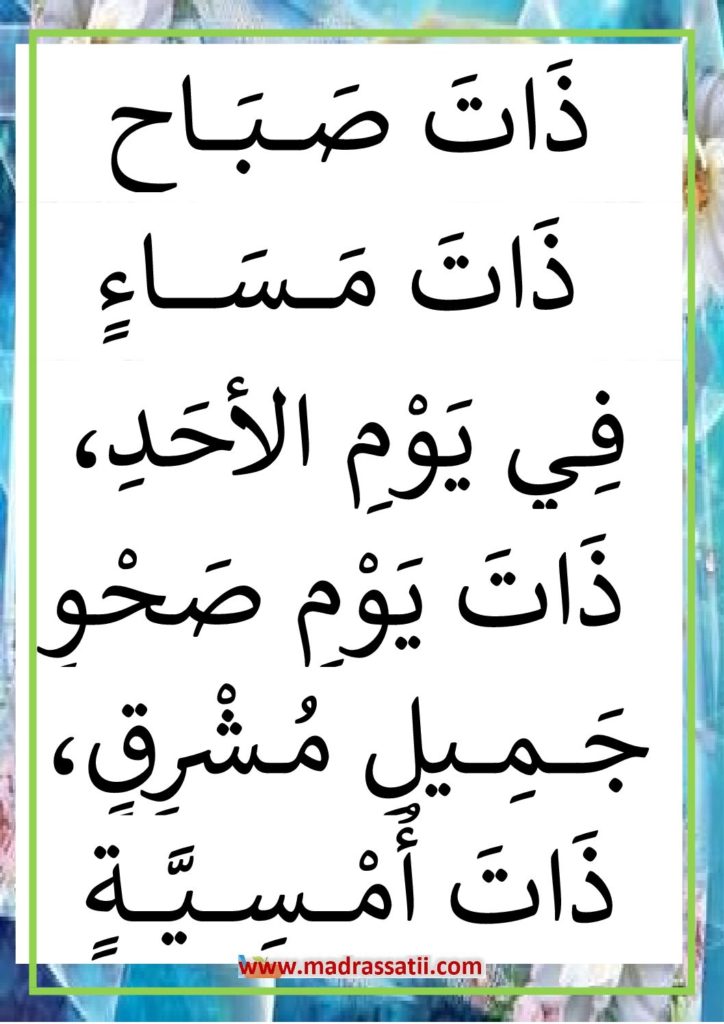 ذَاتَ صَـبَـاح
ذَاتَ مَـسَـــاءٍ
فِي يَوْمِ الأحَدِ،
ذَاتَ يَوْمِ صَحْوِ
جَـمِـيلِ مُـشْرِقٍ،
ذَاتَ أُمْـسِـيَّـةٍ
www.madrassatii.com